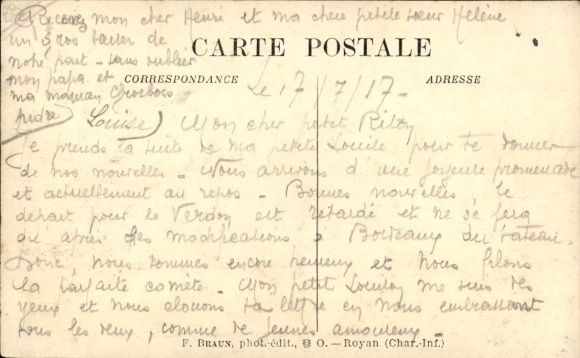 Recevez mon cher Henri et ma chère petite sœur Hélène
un gros baiser de
notre part - sans oublier
mon papa et
ma maman
André Louise
CARTE POSTALE
CORRESPONDANCE
ADRESSE
Le 17/7/17 -
Mon cher petit
Je prends la suite de ma petite Louise pour te donner
de nos nouvelles - Nous arrivons d'une joyeuse promenade
et actuellement au repos - Bonnes nouvelles, le
départ pour le Verdon est retardé et ne se fera
qu'après des modifications à Bordeaux du bateau.
Donc, nous sommes encore heureux et nous filons
la parfaite comète - Mon petit me suis des
yeux et nous clouons ta lettre en nous embrassant
tous les deux, comme de jeunes amoureux -
F. BRAUN, phot.-édit., O. - Royan (Char.-Inf.)